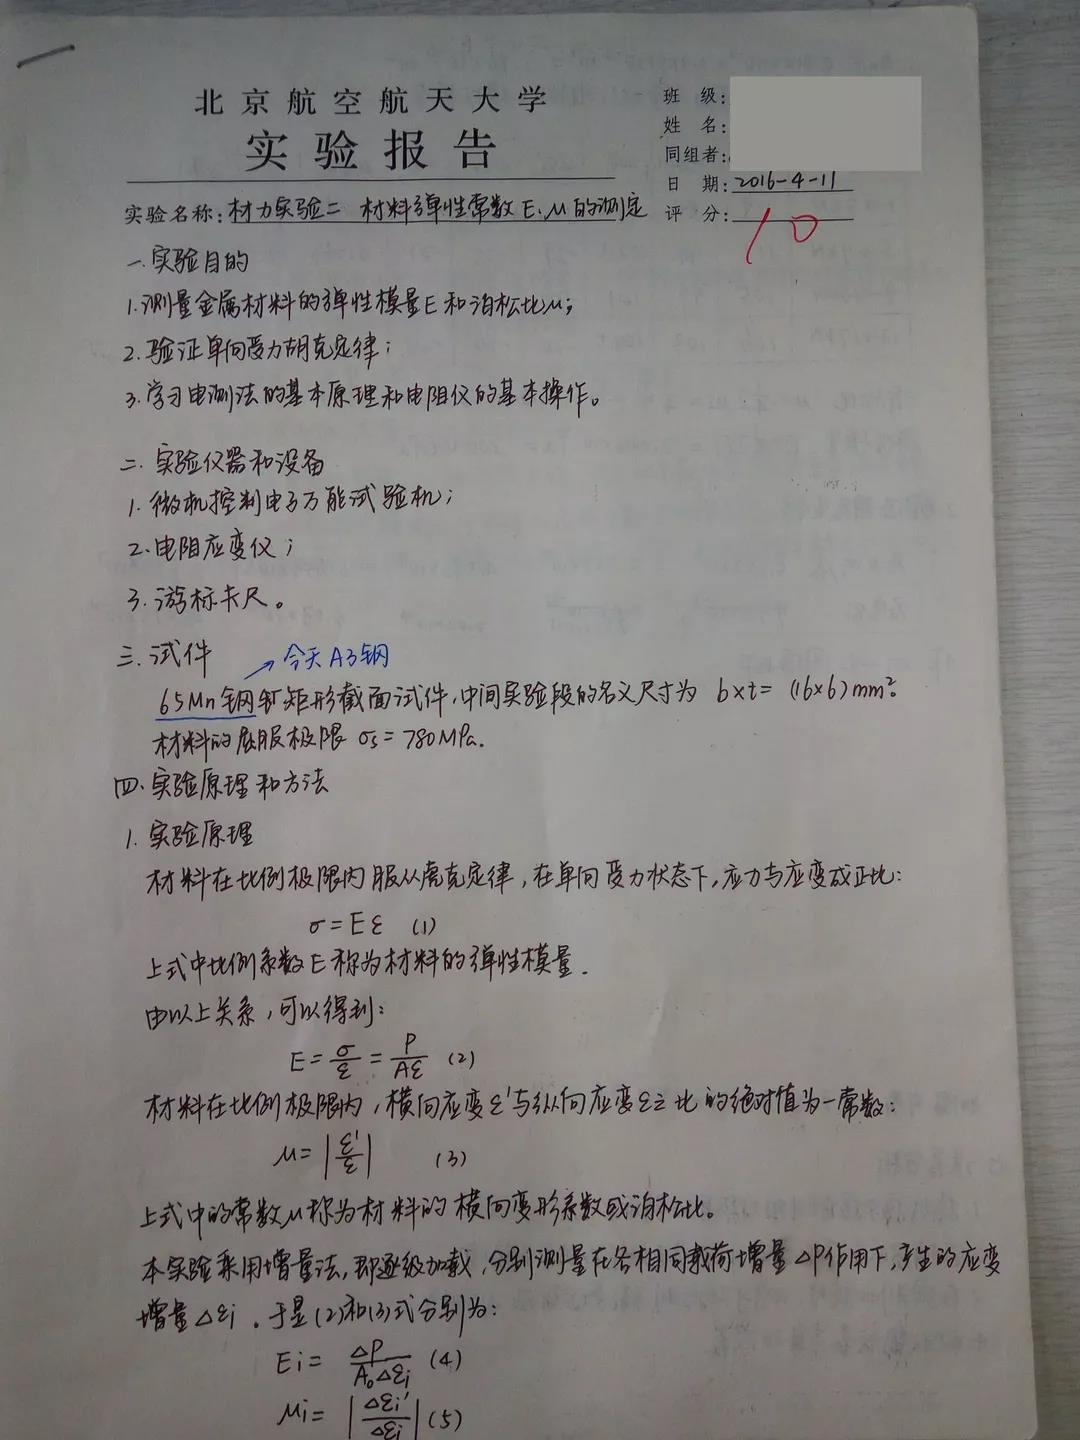 北京航空航天大学
实验报告
班 级:
姓 名:
同组者:
日 期: 2016-4-11
评 分: 10
实验名称: 材力实验二 材料弹性常数E、μ的测定
一.实验目的
1.测量金属材料的弹性模量E和泊松比μ;
2.验证单向受力胡克定律;
3.学习电测法的基本原理和电阻仪的基本操作。
二.实验仪器和设备
1.微机控制电子万能试验机;
2.电阻应变仪;
3.游标卡尺。
三.试件 → 今天A3钢
65Mn钢矿矩形截面试件,中间实验段的名义尺寸为 b×t= (16×6)mm².
材料的屈服极限 σs=780MPa.
四.实验原理和方法
1.实验原理
材料在比例极限内服从虎克定律,在单向受力状态下,应力与应变成正比:
σ=Eε (1)
上式中比例系数E称为材料的弹性模量.
由以上关系,可以得到:
E=σ/ε=P/Aε (2)
材料在比例极限内,横向应变ε'与纵向应变ε之比的绝对值为一常数:
μ=|ε'/ε| (3)
上式中的常数μ称为材料的横向变形系数或泊松比。
本实验采用增量法,即逐级加载,分别测量在各相同载荷增量ΔP作用下,产生的应变
增量Δεi.于是(2)和(3)式分别为:
Ei=ΔP/A₀Δεi (4)
μi=|Δεi'/Δεi| (5)